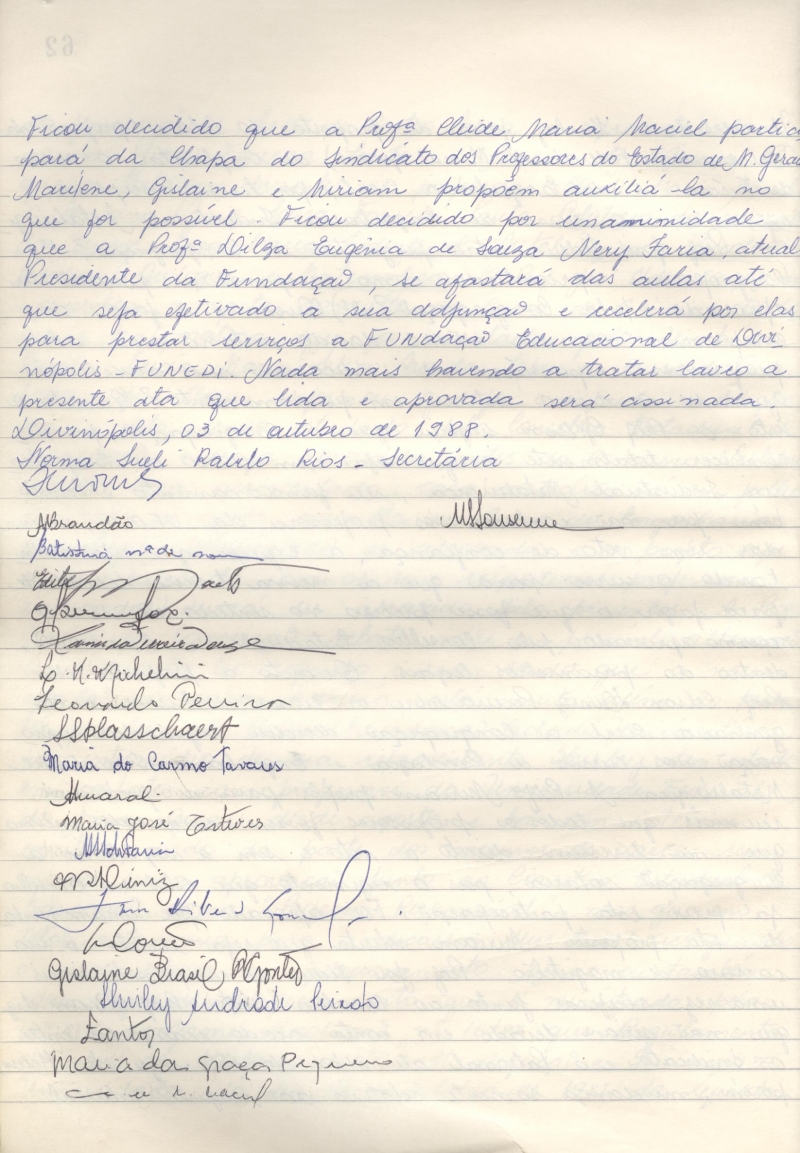 Ficou decidido que a Profª Cleide Maria Maciel partici
pará da Chapa do Sindicato dos Professores do Estado de M. Gerais
Marilene, Gislaine e Miriam propoem auxiliá-la no
que for possível. Ficou decidido por unanimidade
que a Profª Dilza Eugênia de Souza Nery Faria, atual
Presidente da Fundação, se afastará das aulas até
que seja efetivado a sua adjunção e receberá por elas
para prestar serviços a FUNDAÇÃO Educacional de Divi-
nópolis - FUNEDI. Nada mais havendo a tratar lavro a
presente ata que lida e aprovada será assinada.
Divinópolis, 03 de outubro de 1988.
Norma Sueli Rabelo Rios - Secretária
ABrandão
Edite
L. H. Michelini
Leonardo Pereira
SSplasschaert
Maria do Carmo Tavares
Amaral
Maria José Esteves
Gislaine Brasil
Shirley Andrade Peixoto
Santos
Maria das Graças Pequeno
62